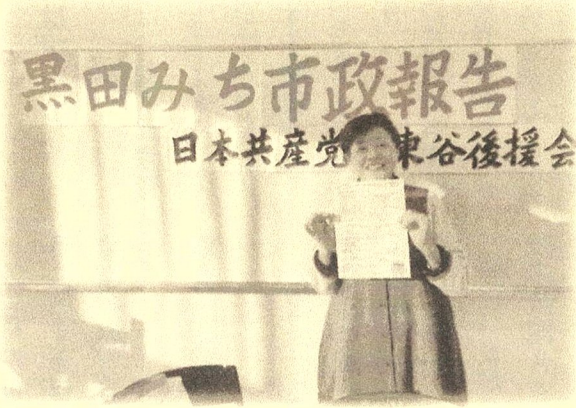 黒田みち市政報告
日本共産党 東谷後援会